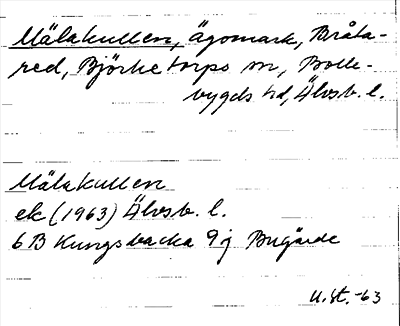 Mälakullen, Ägomark, Bråta-
red, Björketorps sn, Bolle-
bygds hd, Älvsb. l.
Mälakullen
ek (1963) Älvsb. l.
6B Kungsbacka 9j Bugärde
U. St. -63